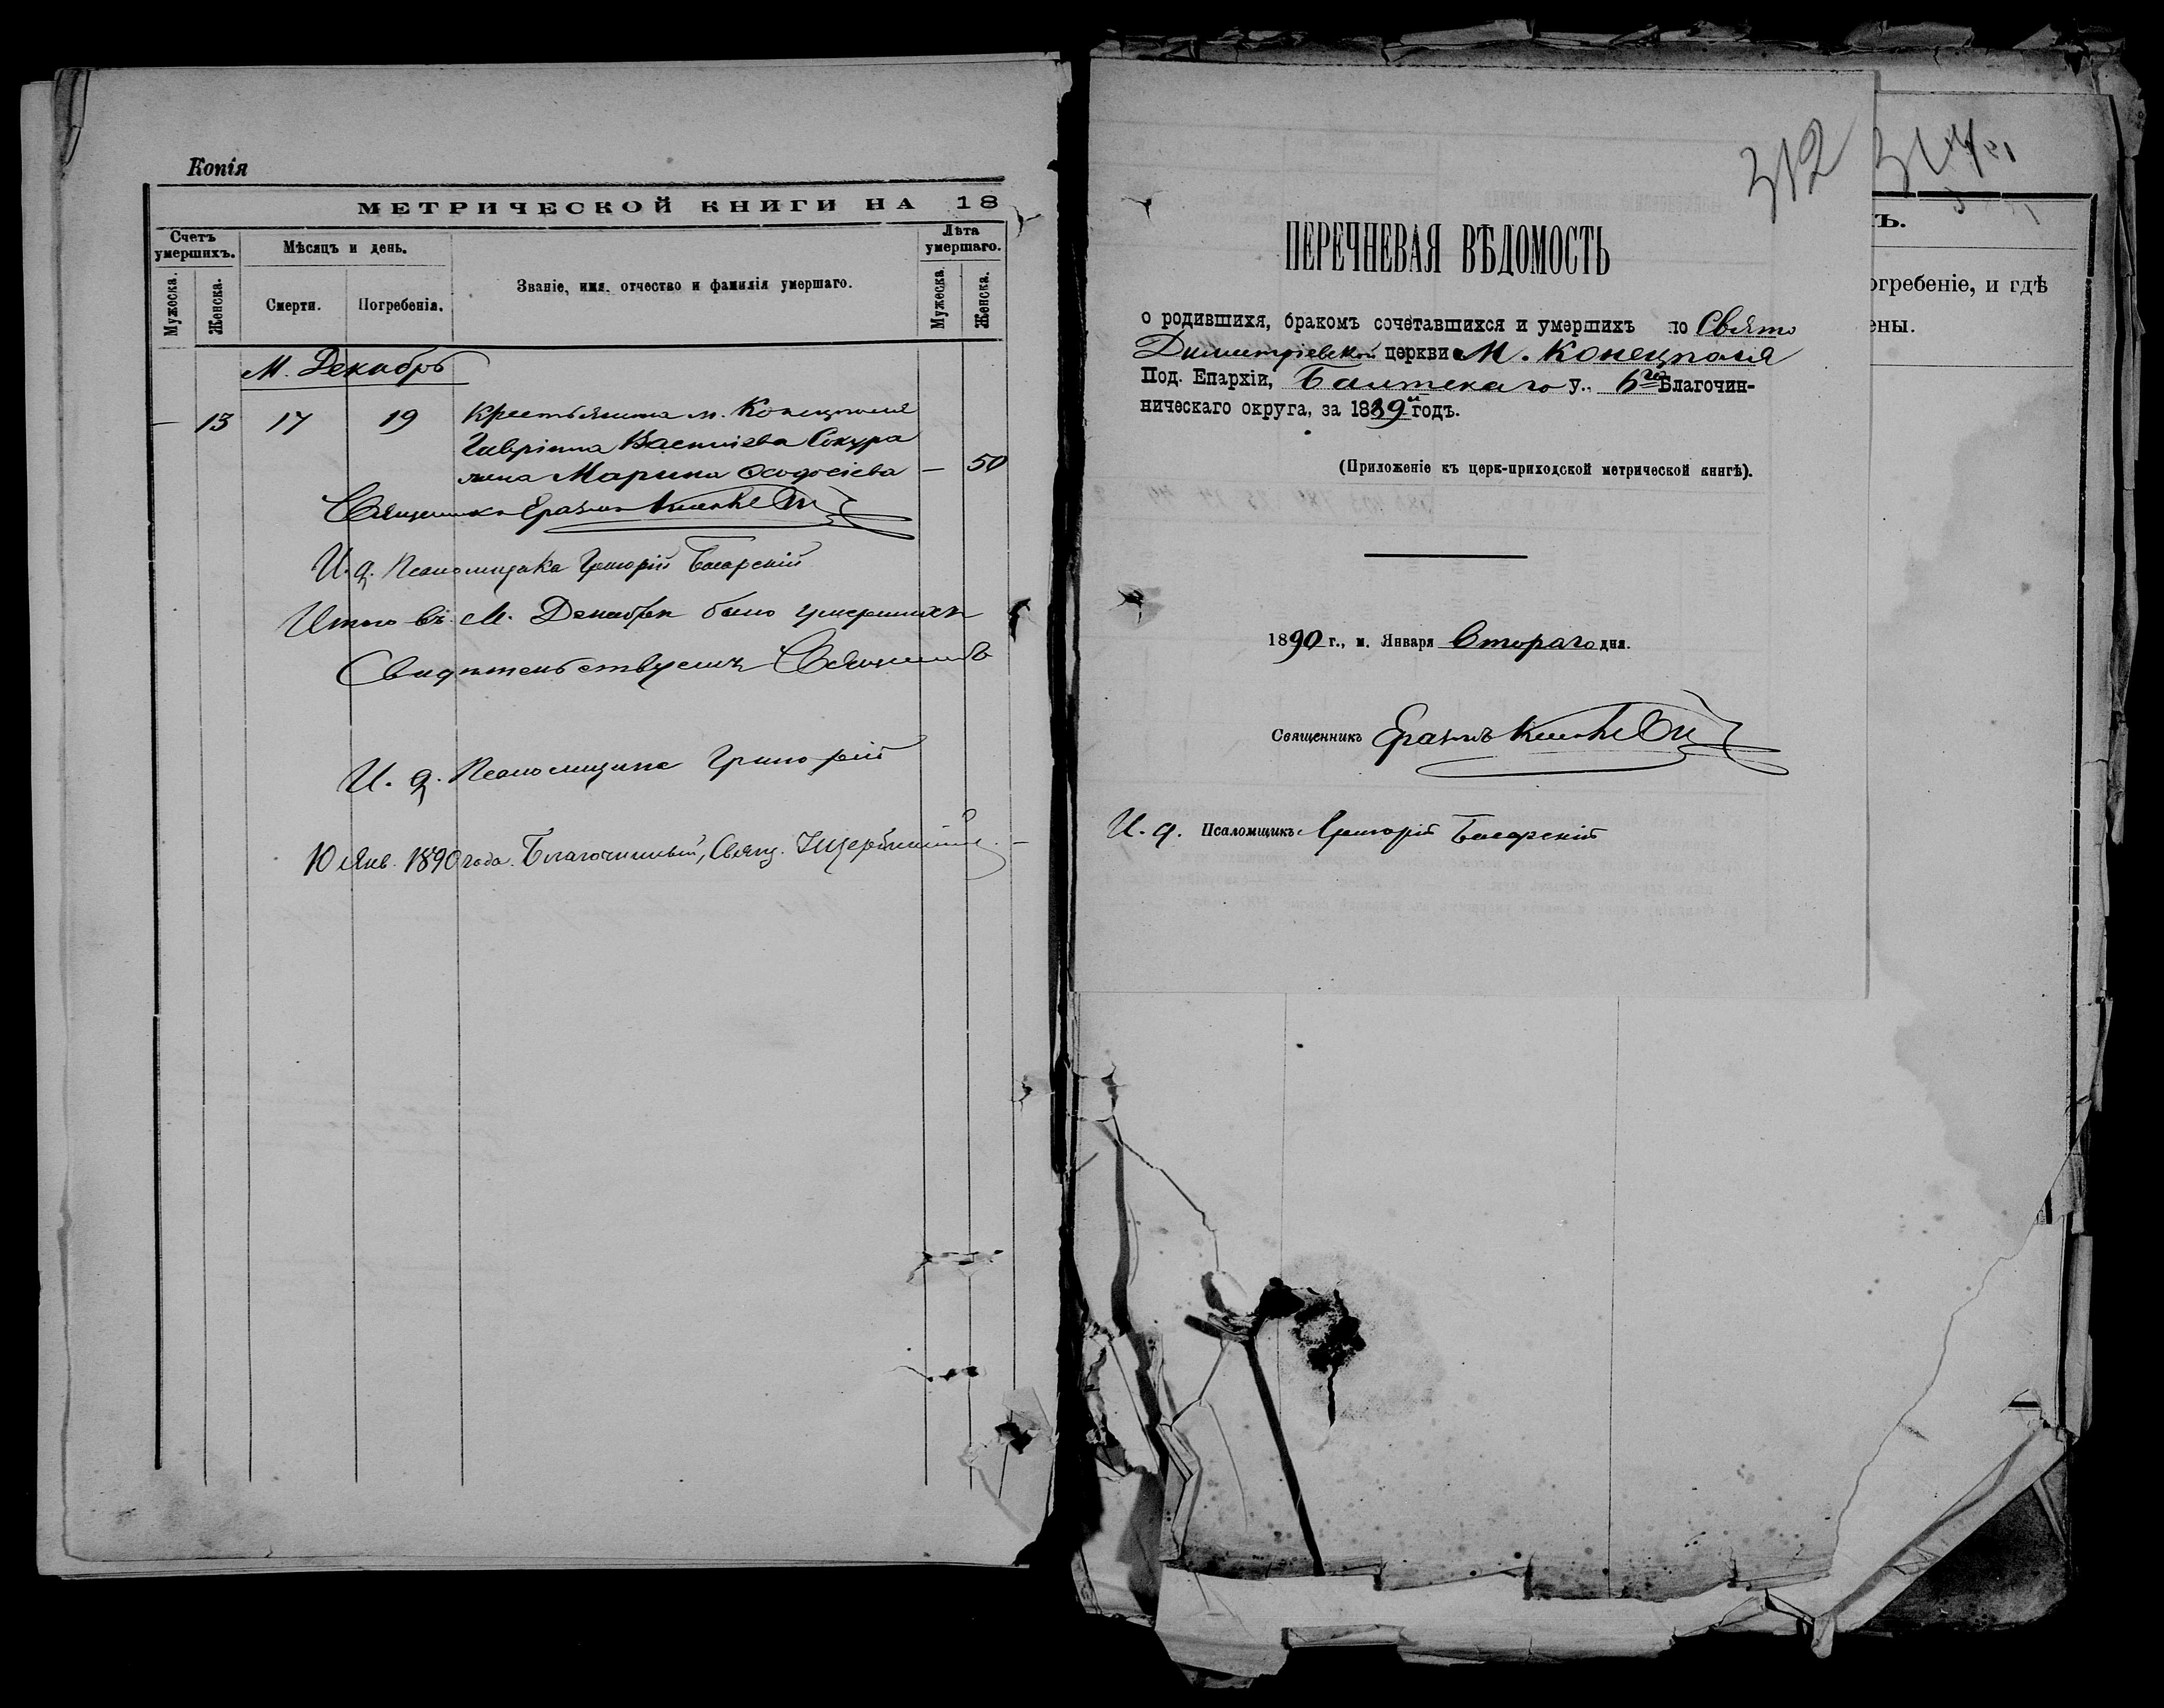 Копія
МЕТРИЧЕСКОЙ КНИГИ НА 18
Счетъ умершихъ.
Мѣсяцъ и день.
Званіе, имя, отчество и фамилія умершаго.
Лѣта умершаго.
Мужеска.
Женска.
Смерти.
Погребенія.
Мужеска
Женска.
М. Декабрь
— 13 17 19 Крестьянина м. Конецполя
Гавріила Васильева Сокура
жена Марина Ѳеодосіева — 50
Священникъ Еразмъ
И. д. Псаломщика Григорій Басарскій
Итого въ М. Декабрѣ было умершихъ
Свидѣтельствуемъ Священникъ
И. д. Псаломщика Григорій
10 Янв. 1890 года. Благочинный, Свящ.
312
ПЕРЕЧНЕВАЯ ВѢДОМОСТЬ
о родившихя, бракомъ сочетавшихся и умершихъ по Свято
Димитріевской церкви М. Конецполя
Под. Епархіи, Балтскаго у., 6го Благочин-
ническаго округа, за 1889й годъ.
(Приложеніе къ церк-приходской метрической книгѣ).
1890 г., м. Января Втораго дня.
Священникъ Еразмъ
И. д. Псаломщикъ Григорій Басарскій
Ъ.
огребеніе, и гдѣ
ены.